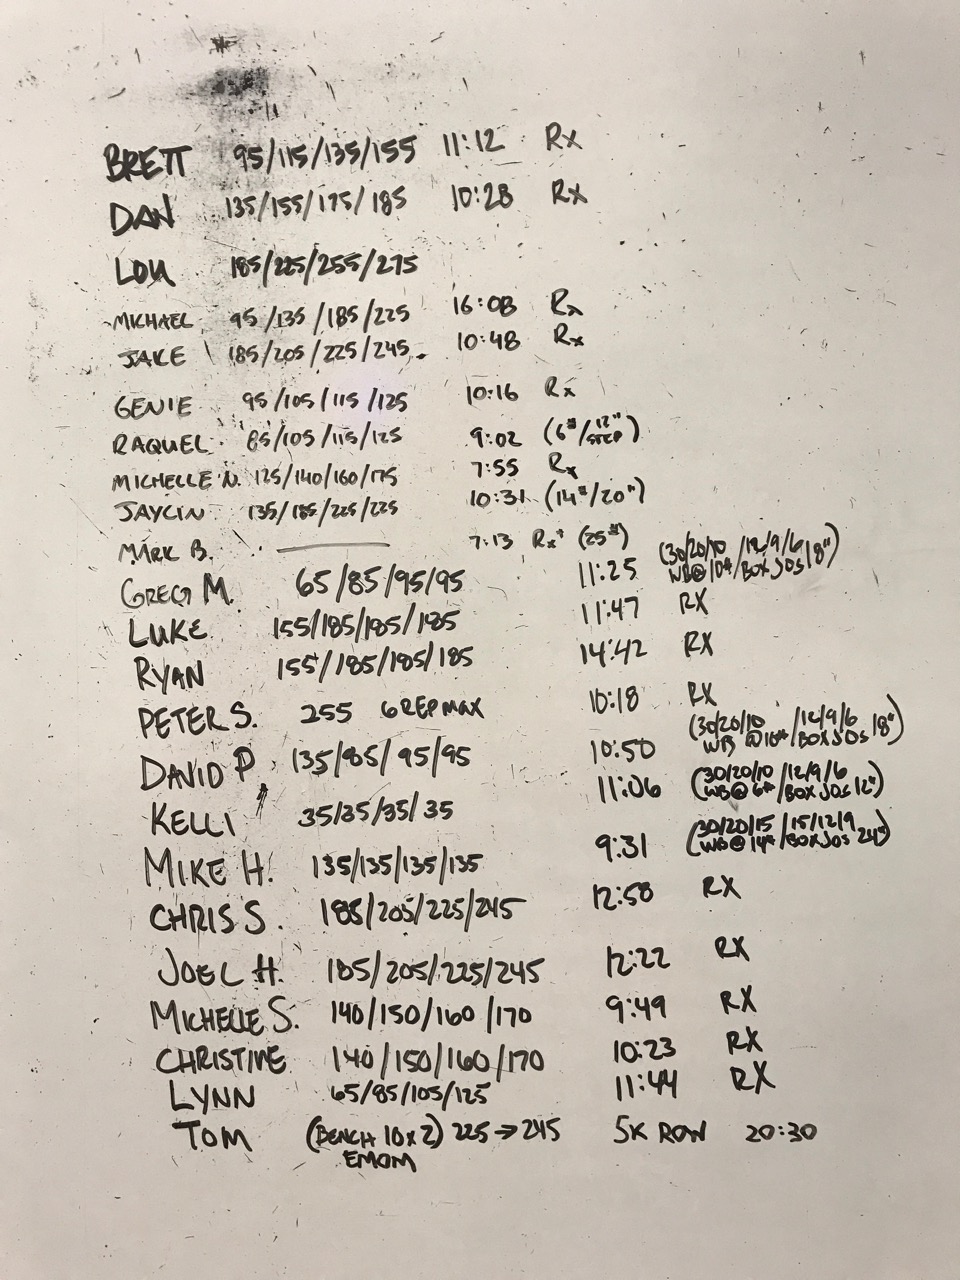 BRETT 95/115/135/155 11:12 Rx
DAN 135/155/175/185 10:28 Rx
LOU 185/225/255/275
MICHAEL 95/135/185/225 16:08 Rx
JAKE 185/205/225/245 10:48 Rx
GENIE 95/105/115/125 10:16 Rx
RAQUEL 85/105/115/125 9:02 (6#/12" STEP)
MICHELLE N. 125/140/160/175 7:55 Rx
JAYCIN 135/185/225/225 10:31 (14#/20")
MARK B. 7:13 Rx+ (25#)
GREG M. 65/85/95/95 11:25 (30/20/10 WB@10#/12/9/6 BOX JOS 18")
LUKE 155/185/185/185 11:47 RX
RYAN 155/185/185/185 14:42 RX
PETER S. 255 6 REP MAX 10:18 RX
DAVID P. 135/85/95/95 10:50 (30/20/10 WB @10#/12/9/6 BOX JOS 18")
KELLI 35/35/35/35 11:06 (30/20/10 WB@6#/12/9/6 BOX JOS 12")
MIKE H. 135/135/135/135 9:31 (30/20/15 WB@14#/15/12/9 BOX JOS 24")
CHRIS S. 185/205/225/245 12:58 RX
JOEL H. 185/205/225/245 12:22 RX
MICHELLE S. 140/150/160/170 9:49 RX
CHRISTINE 140/150/160/170 10:23 RX
LYNN 65/85/105/125 11:44 RX
TOM (BENCH 10x2) 225→245 5K ROW 20:30
EMOM